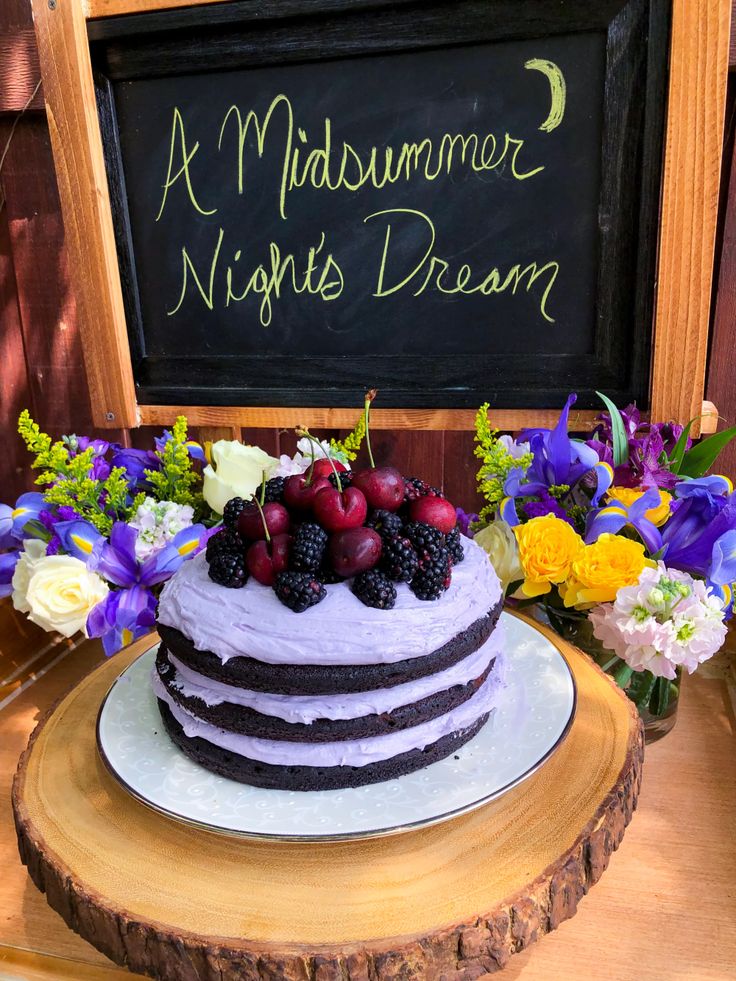 A Midsummer
Night's Dream